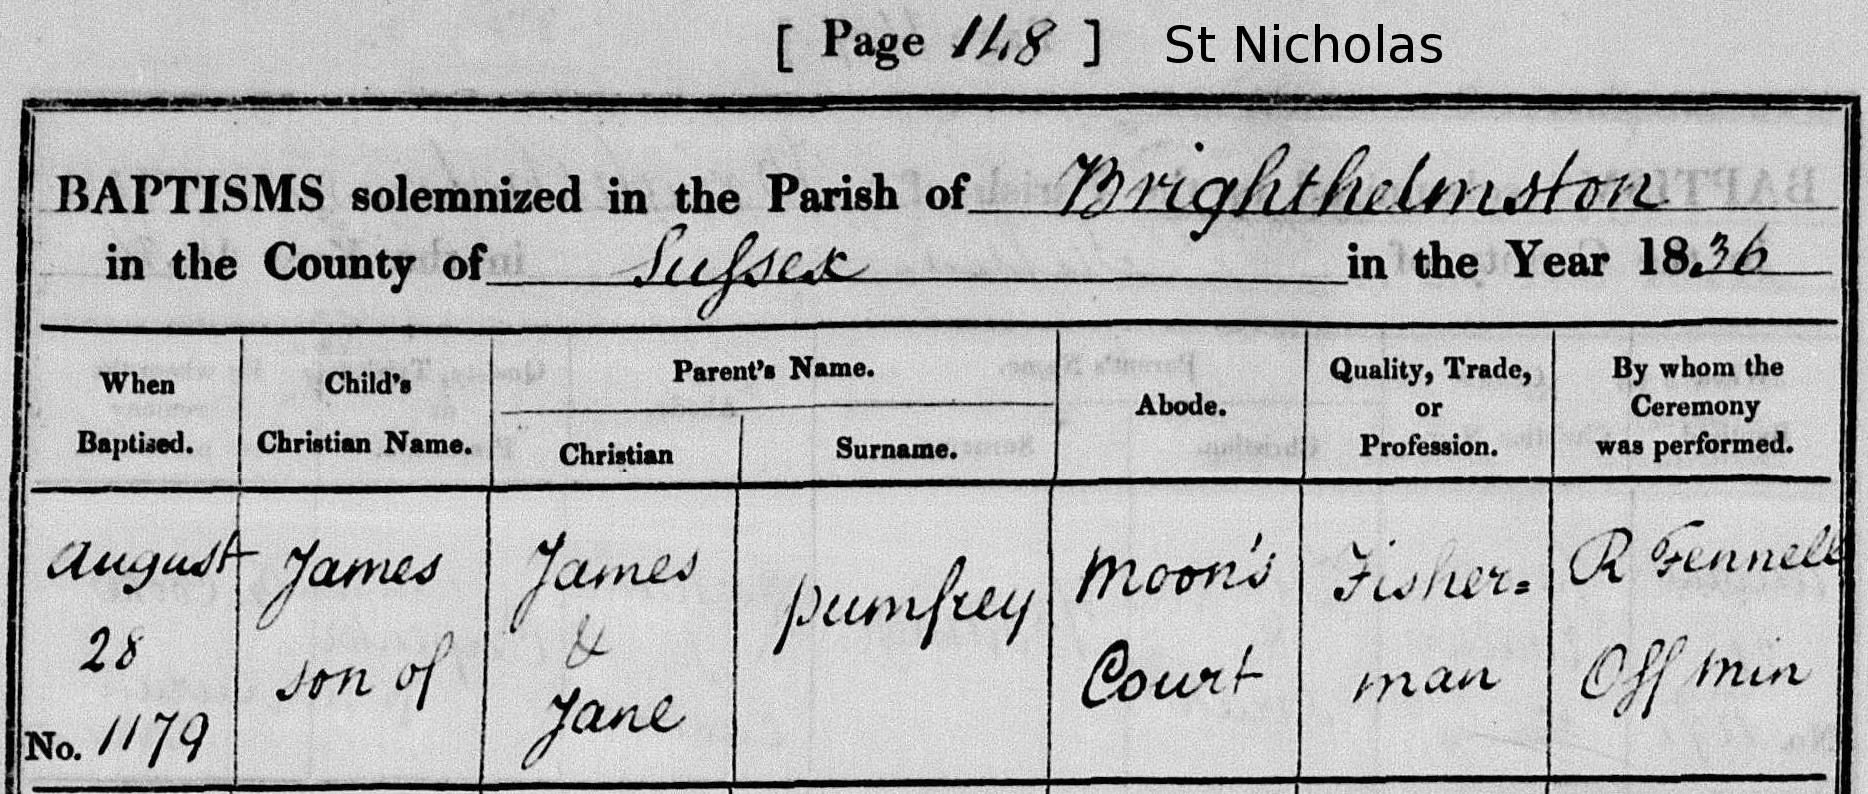 [ Page 148 ] St Nicholas
BAPTISMS solemnized in the Parish of Brighthelmston
in the County of Sussex in the Year 1836
When Baptised.
Child's Christian Name.
Parent's Name.
Christian
Surname.
Abode.
Quality, Trade, or Profession.
By whom the Ceremony was performed.
August
28
No. 1179
James
son of
James
&
Jane
pumfrey
Moon's
Court
Fisher=
man
R Fennell
Off Min